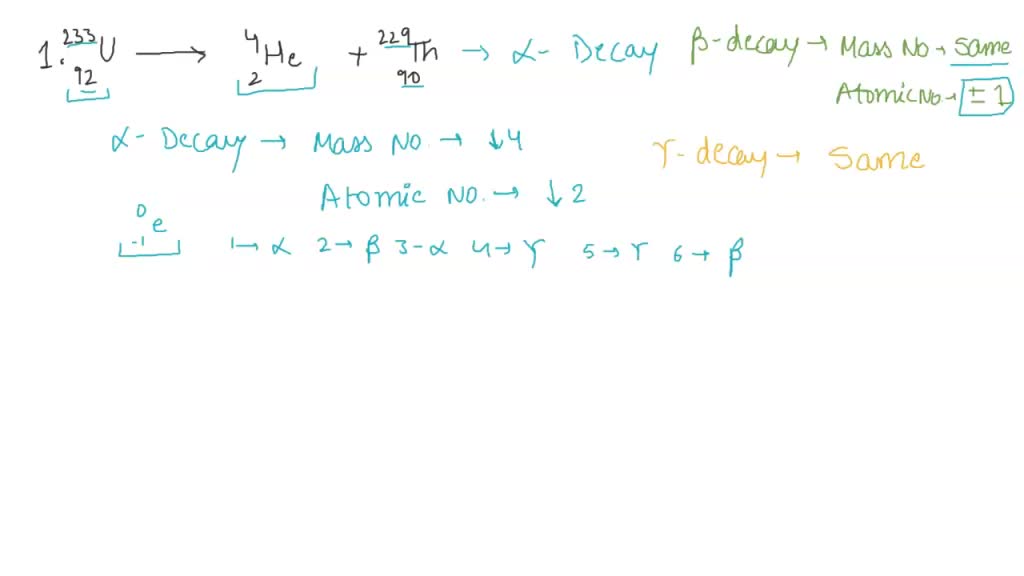 1. ²³³₉₂U → ⁴₂He + ²²⁹₉₀Th → α- Decay
β-decay → Mass No → Same
Atomic No → ± 1
α- Decay → Mass No. → ↓4
Atomic No. → ↓ 2
γ-decay → Same
⁰₋₁e
1 → α 2 → β 3-α 4 → γ 5 → γ 6 → β